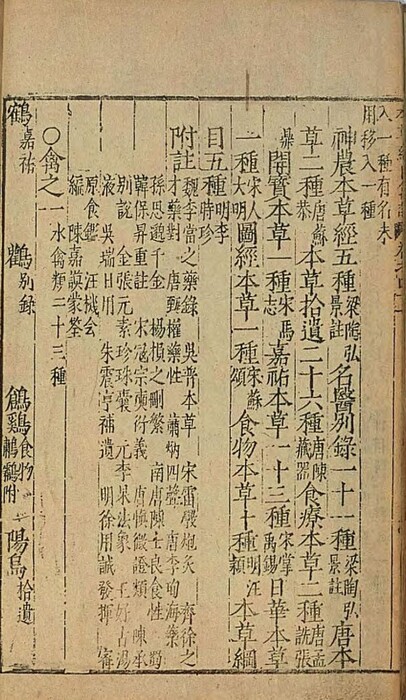 入一種有名未
用移入一種
神農本草經五種梁陶弘景註 名醫別錄一十一種梁陶弘景註 唐本
草二種唐蘇恭 本草拾遺二十六種唐陳藏器 食療本草二種唐孟詵張
鼎 開寶本草一種宋馬志 嘉祐本草一十三種宋掌禹錫 日華本草
一種宋人大明 圖經本草一種宋蘇頌 食物本草十種明汪穎 本草綱
目五種明李時珍
附註魏李當之藥錄 吳普本草 宋雷斆炮炙 齊徐之
才藥對 唐甄權藥性 蕭炳四聲 唐李珣海藥
孫思邈千金 楊損之刪繁 南唐陳士良食性 蜀
韓保昇重註 宋寇宗奭衍義 唐慎微證類 陳承
別說 金張元素珍珠囊 元李杲法象 王好古湯
液 吳瑞日用 朱震亨補遺 明徐用誠發揮 甯
原食鑑 汪機會
編 陳嘉謨蒙筌
○禽之一水禽類二十三種
鶴嘉祐 鸛別錄 鶬鷄食物 鷫鷞附 陽烏拾遺